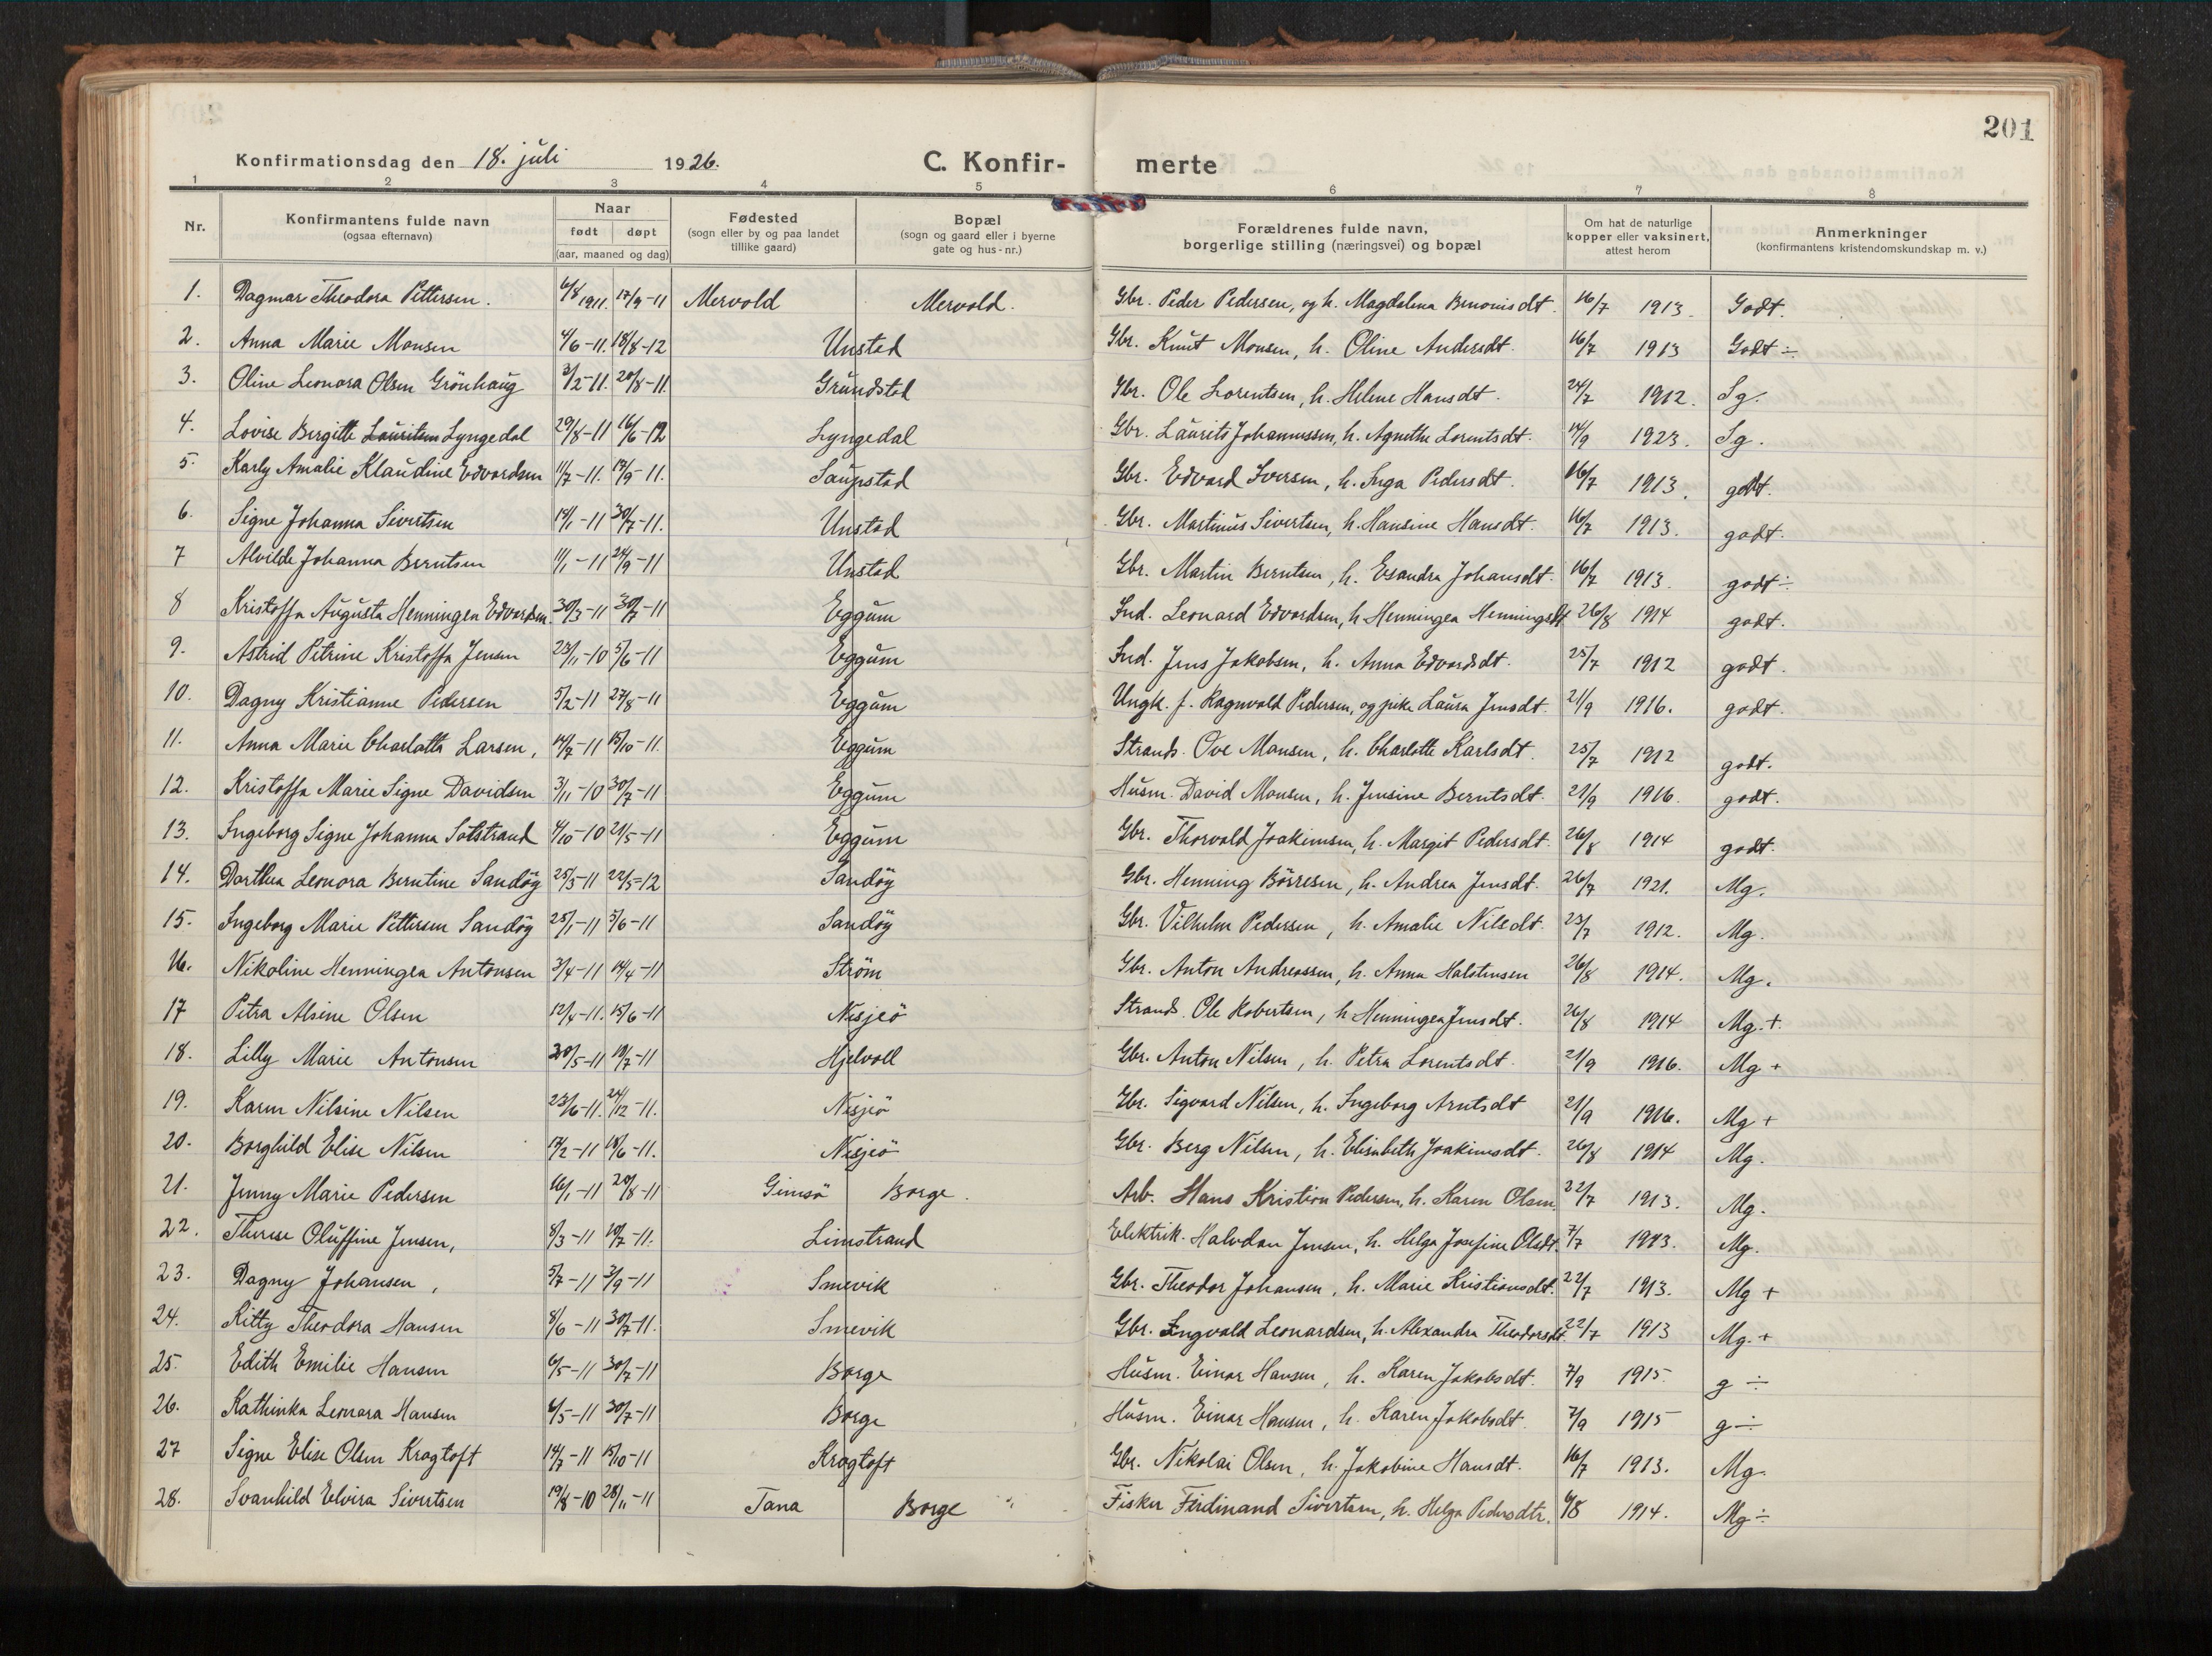 201
Konfirmationsdag den 18. juli 1926. C. Konfirmerte
1 2 3 4 5 6 7 8
Nr. Konfirmantens fulde navn (ogsaa efternavn) Naar født døpt (aar, maaned og dag) Fødested (sogn eller by og paa landet tillike gaard) Bopæl (sogn og gaard eller i byerne gate og hus-nr.) Forældrenes fulde navn, borgerlige stilling (næringsvei) og bopæl Om hat de naturlige kopper eller vaksinert, attest herom Anmerkninger (konfirmantens kristendomskundskap m. v.)
1. Dagmar Theodora Pettersen. 6/8 1911. 17/9-11 Mervold Mervold. Gbr. Peder Pedersen, og h. Magdalena Benonisdt. 16/7 1913. Godt.
2. Anna Marie Monsen 4/6-11. 18/8-12 Unstad Gbr. Knut Monsen, h. Oline Andersdt. 16/7 1913 Godt ÷
3. Oline Leonora Olsen Grönhaug 3/2-11. 20/8-11. Grundstad Gbr. Ole Lorentsen, h. Helene Hansdt. 24/7 1912. Sg.
4. Lovise Bergitte Lauritsen Lyngedal 29/8-11 16/6-12 Lyngedal Gbr. Laurits Johannessen, h. Agnethe Lorentsdt. 14/9 1923. Sg.
5. Karly Amalie Klaudine Edvardsen 11/7-11. 17/9-11. Saupstad Gbr. Edvard Iversen, h. Inga Pedersdt. 16/7 1913. godt.
6. Signe Johanna Sivertsen 19/1-11 30/7-11. Unstad Gbr. Martinus Sivertsen, h. Hansine Hansdt. 16/7 1913. godt.
7 Alvilde Johanna Berntsen 11/1-11 24/9-11 Unstad Gbr. Martin Berntsen, h. Esandra Johansdt. 16/7 1913. godt ÷
8 Kristoffa Augusta Henningea Edvardsen 30/3-11 30/7-11 Eggum Ind. Leonard Edvardsen, h. Henningea Henningsdt 26/8 1914 godt.
9. Astrid Petrine Kristoffa Jensen 23/11-10 5/6-11 Eggum Ind. Jens Jakobsen, h. Anna Edvardsdt. 25/7 1912 godt.
10. Dagny Kristianne Pedersen 5/2-11 27/8-11 Eggum Ungk. f. Ragnvald Pedersen, og pike Laura Jensdt. 21/9 1916. godt.
11. Anna Marie Charlotta Larsen, 14/7-11 15/10-11. Eggum Strands. Ove Monsen, h. Charlotte Karlsdt. 25/7 1912 godt.
12. Kristoffa Marie Signe Davidsen 3/11-10 30/7-11 Eggum Husm. David Monsen, h. Jensine Berntsdt. 21/9 1916. godt.
13. Ingeborg Signe Johanna Solstrand 4/10-10 21/5-11 Eggum Gbr. Thorvald Joakimsen, h. Margit Pedersdt. 26/8 1914 godt.
14. Dorthea Leonora Berntine Sandöy 25/3-11 22/5-12 Sandöy Gbr. Henning Börresen, h. Andrea Jensdt. 26/7 1921. Mg.
15. Ingeborg Marie Pettersen Sandöy 25/1-11 5/6-11 Sandöy Gbr. Vilhelm Pedersen, h. Amalie Nilsdt. 23/7 1912. Mg.
16. Nikoline Henningea Antonsen 3/4-11 14/4-11 Ström Gbr. Anton Andreassen, h. Anna Halstensen 26/8 1914. Mg.
17 Petra Alsine Olsen 12/4-11. 15/6-11 Nisjeö Strands. Ole Robertsen, h. Henningea Jensdt. 26/8 1914 Mg.+.
18. Lilly Marie Antonsen 20/5-11 19/7-11 Hjelvoll Gbr. Anton Nilsen, h. Petra Lorentsdt. 21/9 1916. Mg +
19. Karen Nilsine Nilsen 23/6-11. 24/12-11. Nisjeö Gbr. Sigvard Nilsen, h. Ingeborg Arntsdt 21/9 1916. Mg +
20. Borghild Elise Nilsen 17/2-11 18/6-11. Nisjeö Gbr. Berg Nilsen, h. Elisabeth Joakimsdt. 26/8 1914 Mg.
21. Jenny Marie Pedersen 16/1-11 20/8-11 Gimsö Borge. Arb. Hans Kristian Pedersen, h. Karen Olsen. 22/7 1913. Mg.
22. Therese Oluffine Jensen, 8/3-11 20/7-11. Limstrand Elektrik. Halvdan Jensen, h. Helga Josefine Olsdt. 7/7 1913. Mg.
23. Dagny Johansen, 5/7-11 3/9-11 Smevik Gbr. Theodor Johansen, h. Marie Kristiansdt. 22/7 1913. Mg +
24. Kitty Theodora Hansen 8/6-11 30/7-11. Smevik Gbr. Ingvald Leonardsen, h. Alexandra Theodorsdt. 22/7 1913 Mg. +
25. Edith Emilie Hansen 6/5-11 30/7-11 Borge Husm. Einar Hansen, h. Karen Jakobsdt. 7/9 1915. g ÷
26. Kathinka Leonora Hansen 6/5-11 30/7-11 Borge Husm. Einar Hansen, h. Karen Jakobsdt. 7/9 1915 g ÷
27 Signe Elise Olsen Kragtoft 14/7-11 15/10-11 Kragtoft Gbr. Nikolai Olsen, h. Jakobine Hansdt. 16/7 1913. Mg.
28. Svanhild Elvira Sivertsen 19/8-10 28/11-11 Tana Borge Fisker Ferdinand Sivertsen, h. Helga Pedersdtr. 6/8 1914. Mg ÷